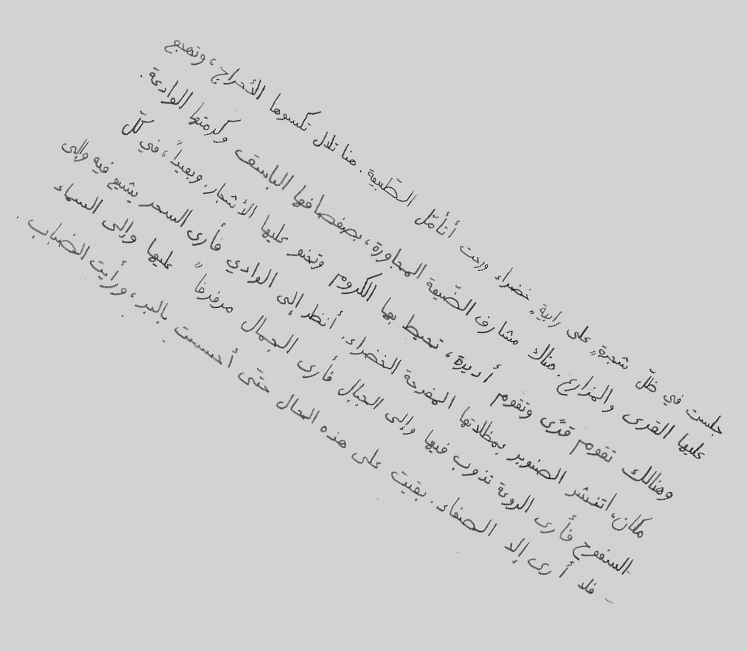 جلست في ظلّ شجرةٍ على رابيةٍ خضراء ورحت أتأمّل الطّبيعة. هنا تلال تكسوها الأحراج، وتهجع
عليها القرى والمزارع. هناك مشارف الضّيعة المجاورة، بصفصافها الباسق وكرمتها الوادعة.
وهنالك تقوم قرًى وتقوم أديرة، تحيط بها الكروم وتحنو عليها الأشجار. وبعيداً، في كلّ
مكان، انتشر الصنوبر بمظلاتها المفرحة الخضراء. أنظر إلى الوادي فأرى السحر يشيع فيه وإلى
السفوح فأرى الروعة تذوب فيها وإلى الجبال فأرى الجمال مرفرفاً عليها وإلى السماء
فلا أرى إلا الصفاء. بقيت على هذه الحال حتّى أحسست بالبرد، ورأيت الضباب.